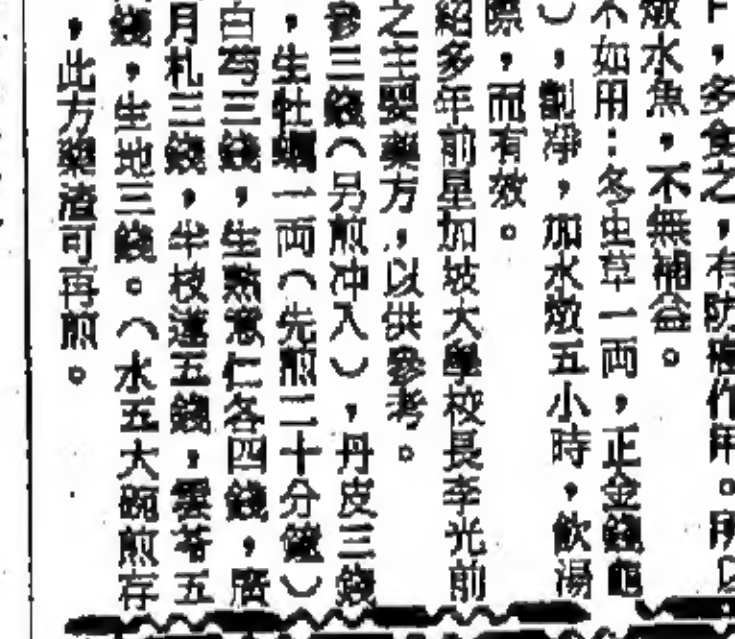 ,多食之,有防癌作用。所以
燉水魚,不無補益。
不如用:冬虫草一両,正金錢龜
),劏淨,加水燉五小時,飲湯
際,而有效。
紹多年前星加坡大學校長李光前
之主要藥方,以供參考。
參三錢(另煎冲入),丹皮三錢
,生牡蠣一両(先煎二十分鐘)
白芍三錢,生熟薏仁各四錢,廣
月札三錢,半枝蓮五錢,雲苓五
錢,生地三錢。(水五大碗煎存
,此方藥渣可再煎。